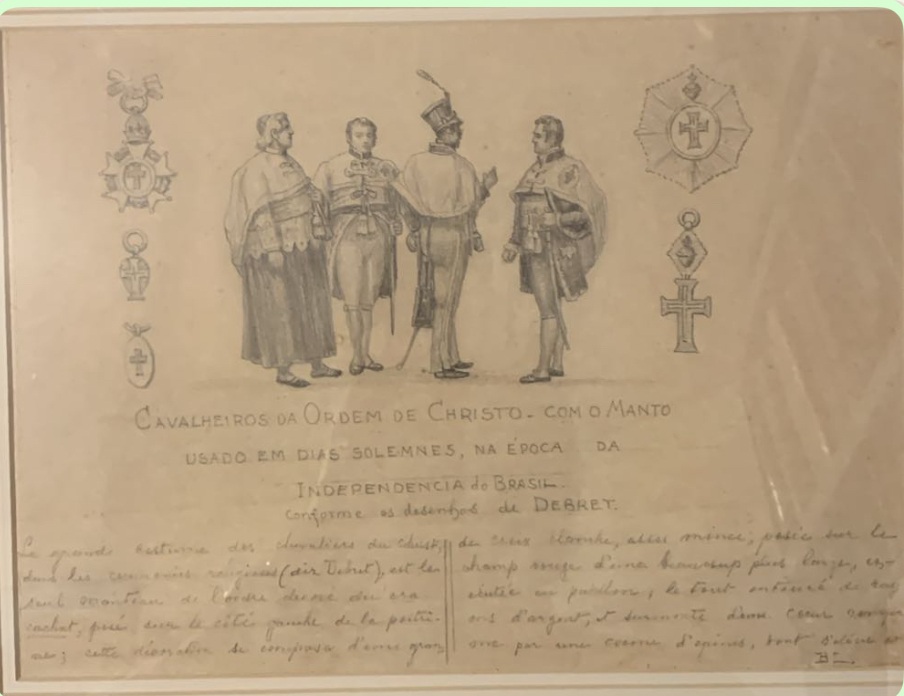 CAVALHEIROS DA ORDEM DE CHRISTO - COM O MANTO
USADO EM DIAS SOLEMNES, NA ÉPOCA DA
INDEPENDENCIA do BRASIL.
conforme os desenhos de DEBRET.
Le grande costume des chevaliers du Christ,
dans les ceremonies religieuses (dir Debret), est le
seul manteau de l'ordre decoré du
cachet, posé sur le côté gauche de la poitri-
ne; cette décoration se composa d'une gran
de croix blanche, assez mince, posée sur le
champ rouge d'une beaucoup plus large, ex-
écutée en paillon; le tout entouré de ray
ons d'argent, et surmonté d'un coeur
par une couronne d'épines, dont s'élève
BL.